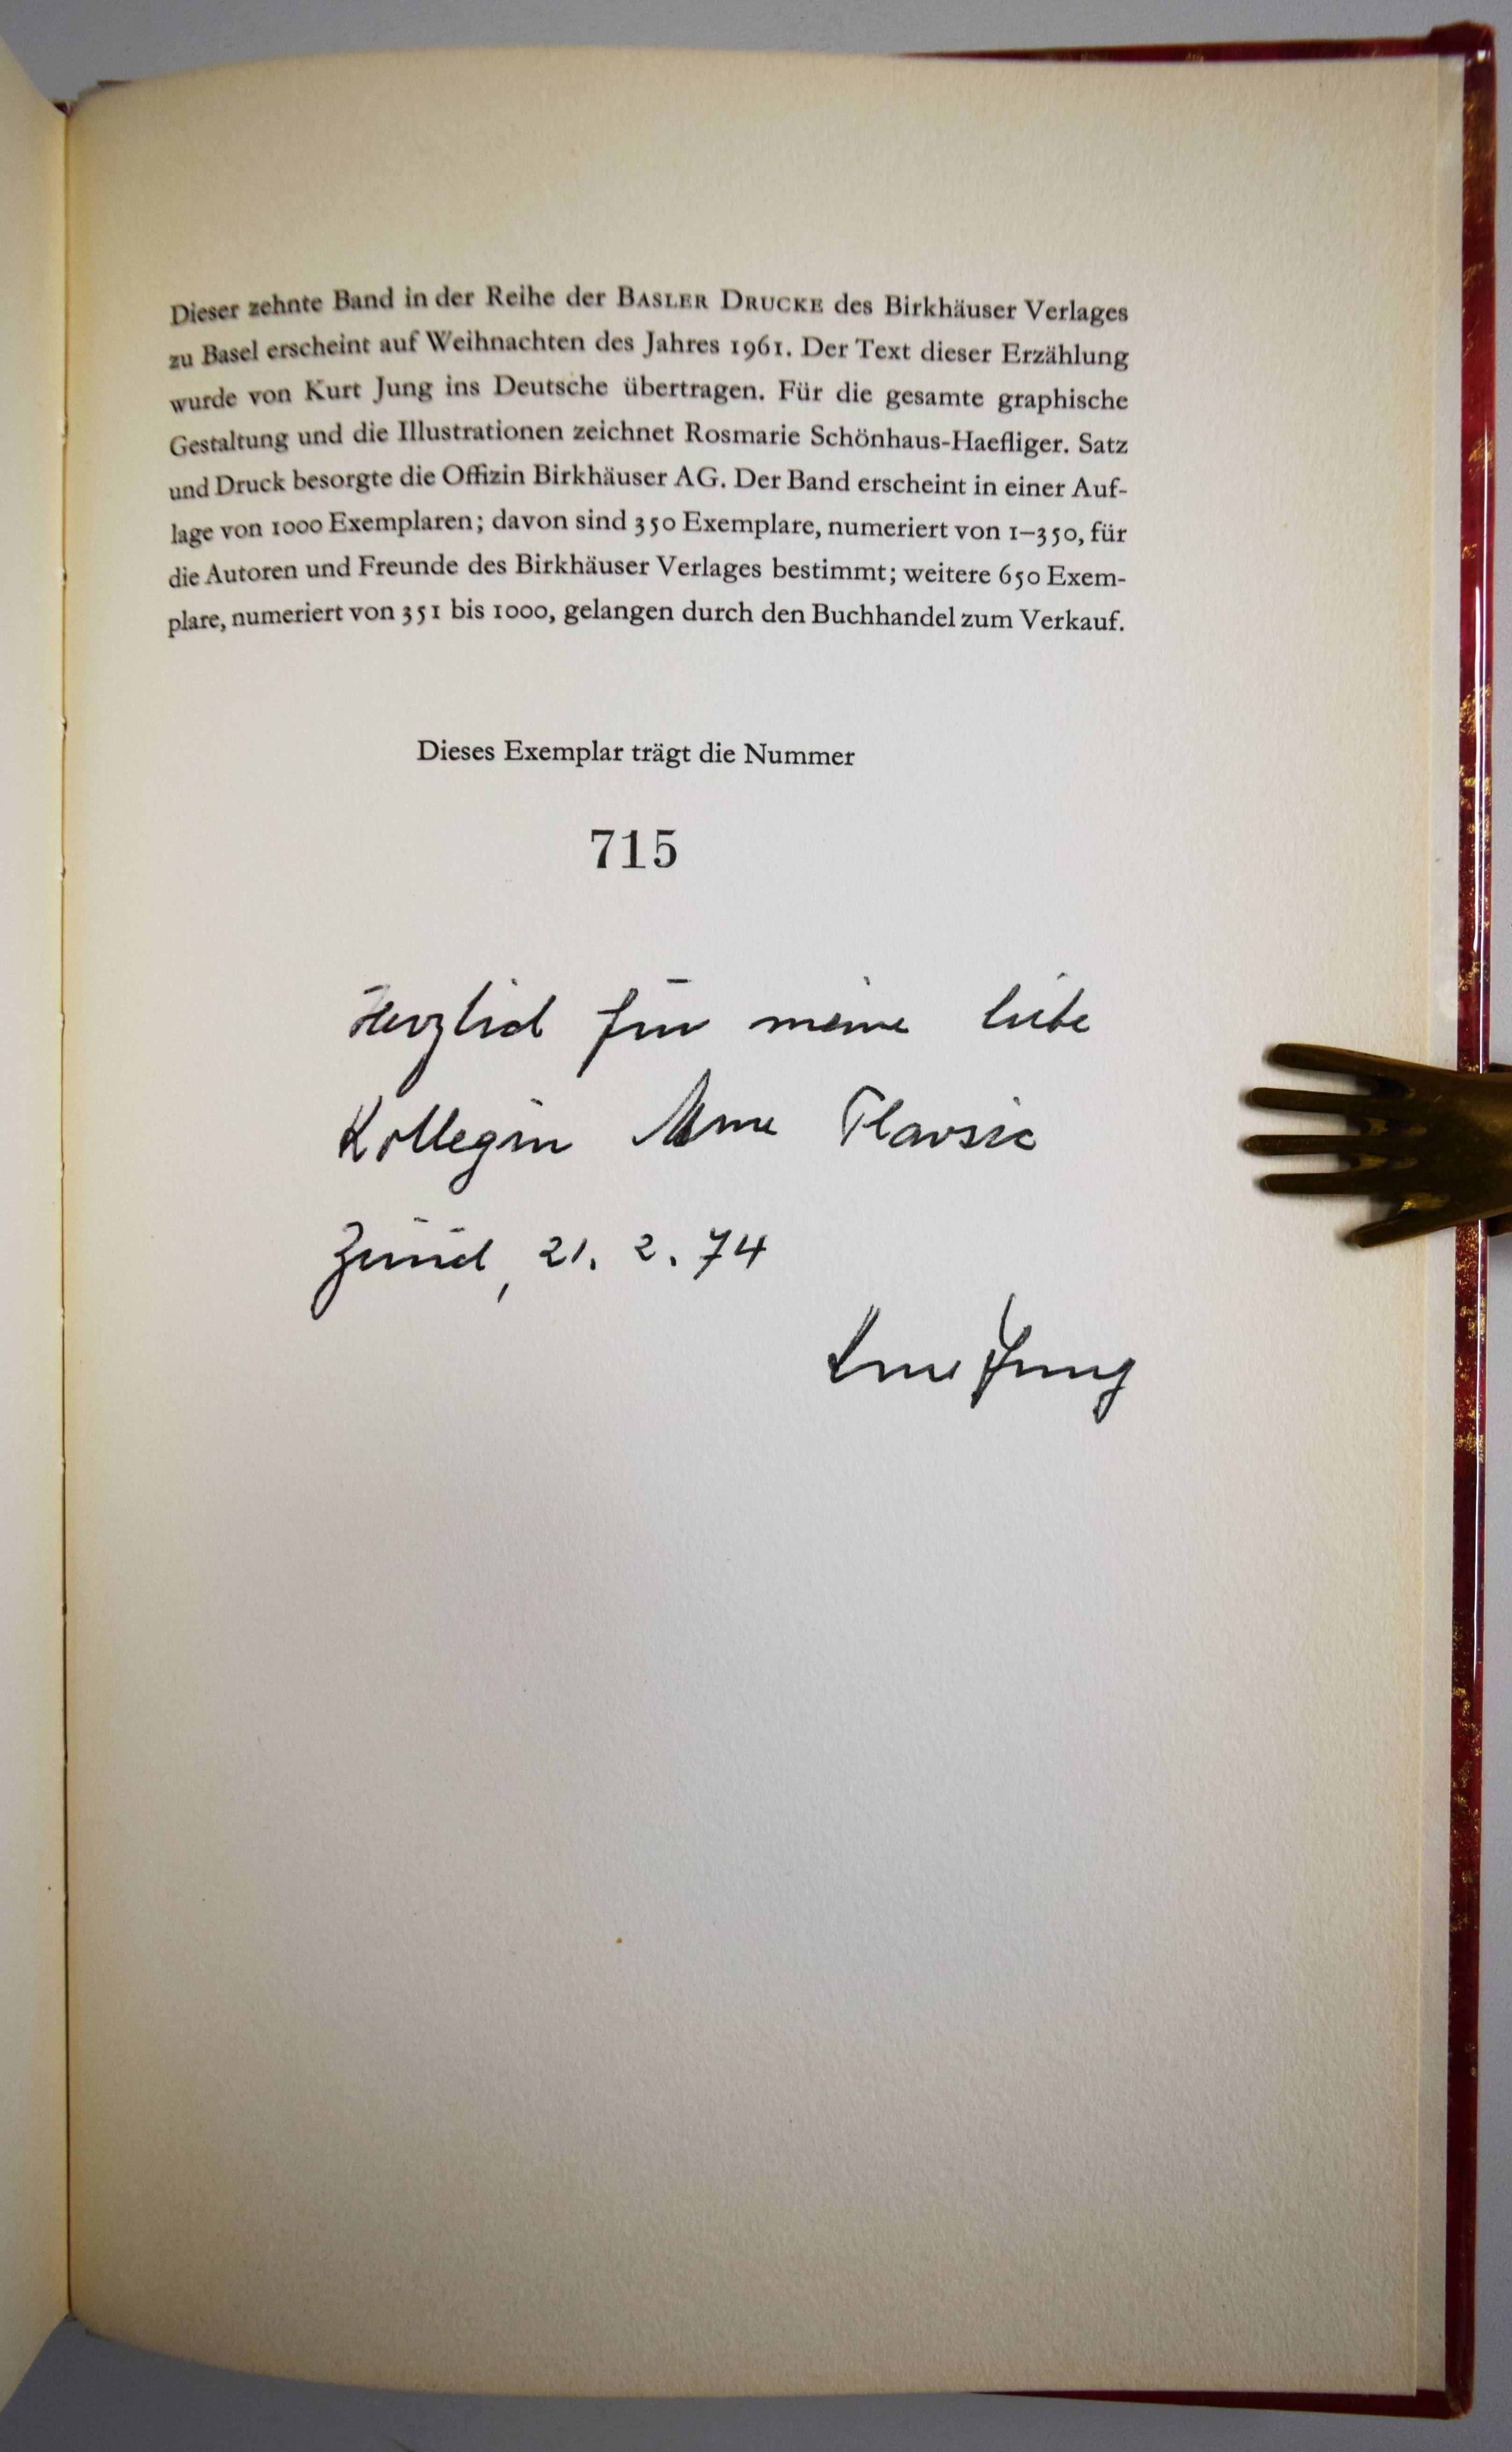 Dieser zehnte Band in der Reihe der BASLER DRUCKE des Birkhäuser Verlages
zu Basel erscheint auf Weihnachten des Jahres 1961. Der Text dieser Erzählung
wurde von Kurt Jung ins Deutsche übertragen. Für die gesamte graphische
Gestaltung und die Illustrationen zeichnet Rosmarie Schönhaus-Haefliger. Satz
und Druck besorgte die Offizin Birkhäuser AG. Der Band erscheint in einer Auf-
lage von 1000 Exemplaren; davon sind 350 Exemplare, numeriert von 1–350, für
die Autoren und Freunde des Birkhäuser Verlages bestimmt; weitere 650 Exem-
plare, numeriert von 351 bis 1000, gelangen durch den Buchhandel zum Verkauf.
Dieses Exemplar trägt die Nummer
715
Herzlich für meine liebe
Kollegin Mme
Zürich, 21. 2. 74
Kurt Jung